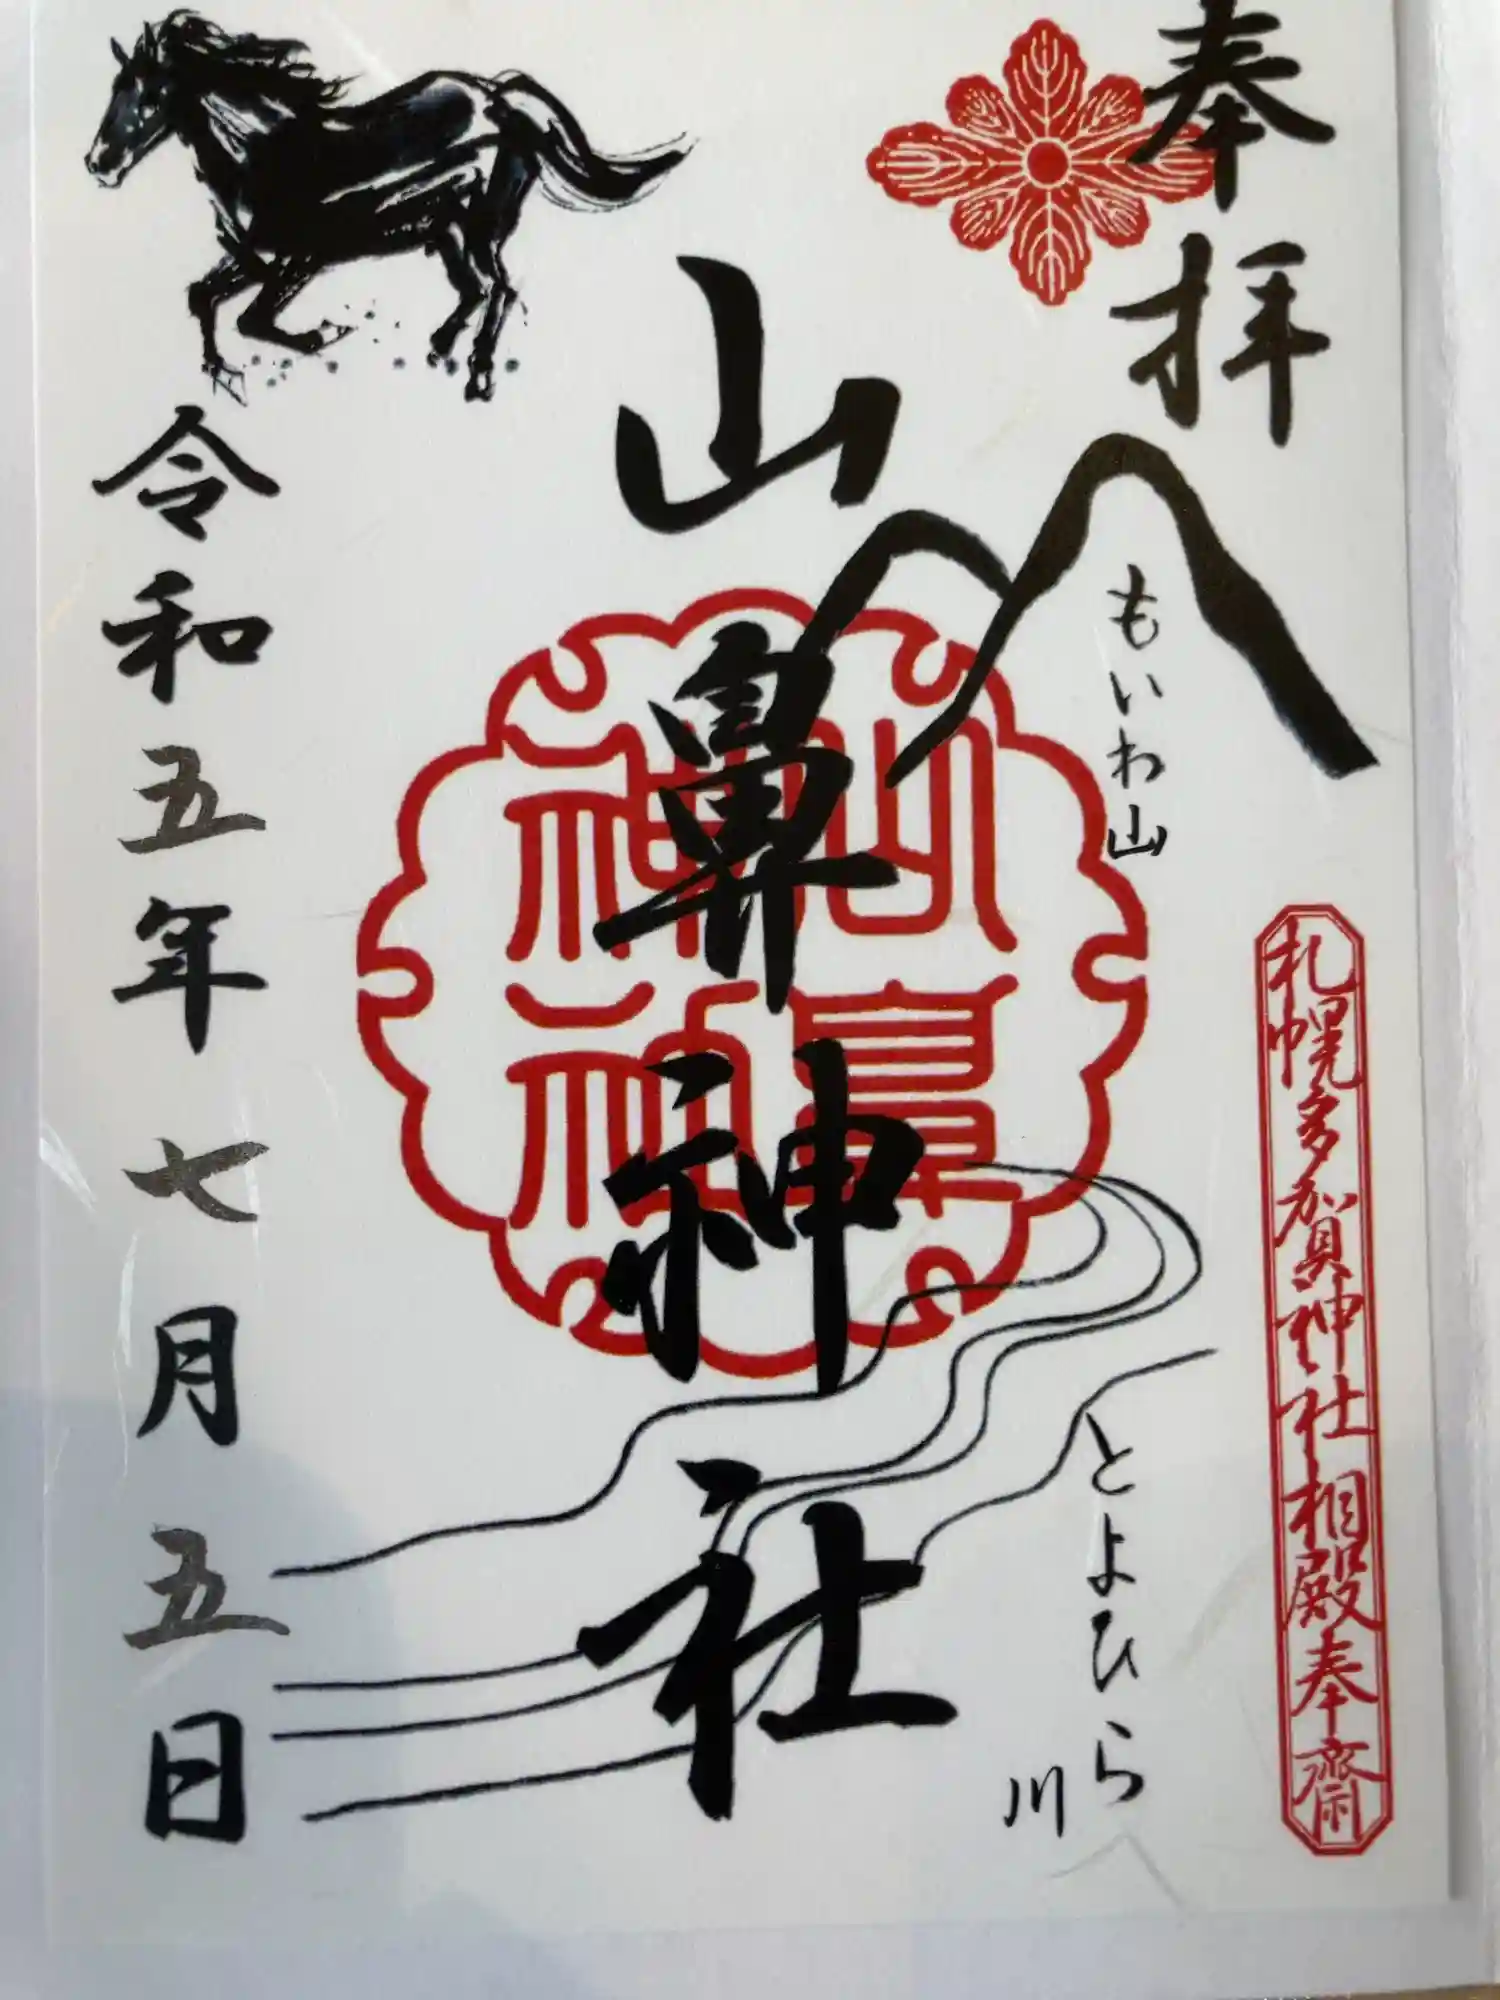 奉拝
もいわ山
とよひら
川
札幌多賀神社相殿奉齋
山鼻神社
山鼻
神社
令和五年七月五日